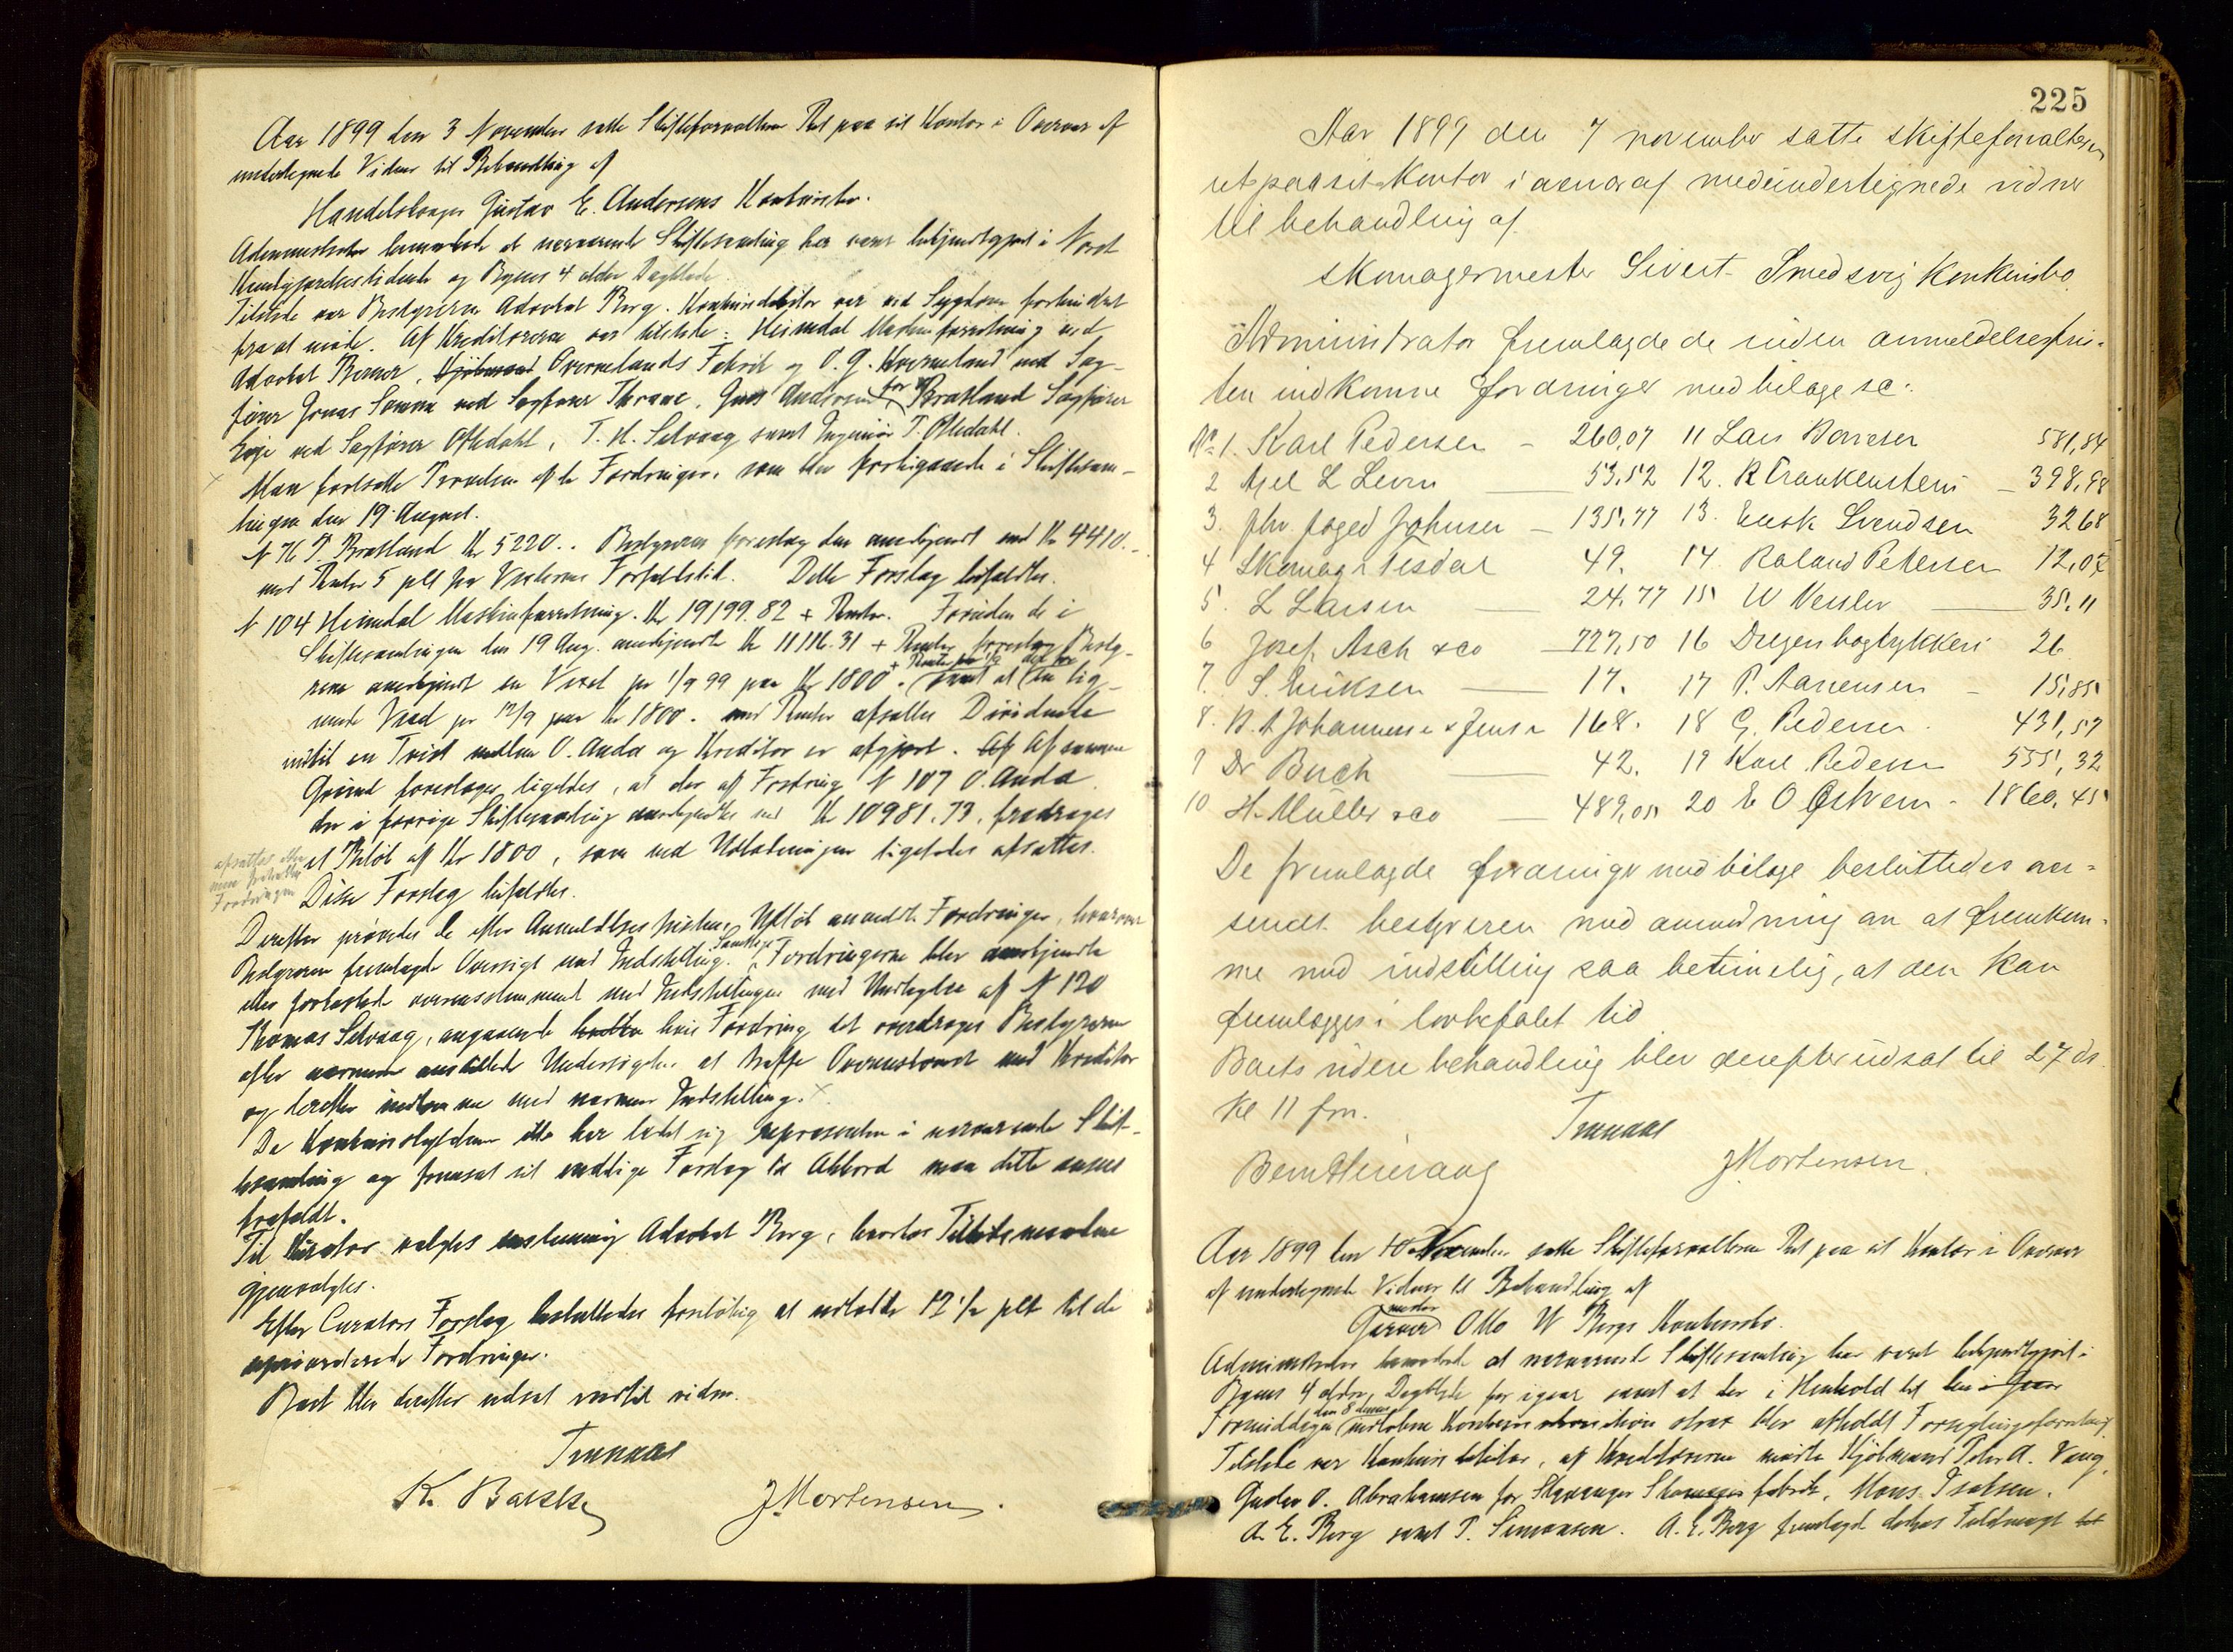 Aar 1899 den 3 November satte Skifteforvalteren Ret paa sit Kontor i Overvær af
undertegnede Vidner til Behandling af
Handelsborger Gustav E. Andersens Konkursbo.
Administrator bemærkede at nærværende Skiftesamling har været bekjendtgjort i Norsk
Kundgjørelsestidende og Byens 4 ældre Dagblade.
Tilstede var Bestyreren Advokat Berg. Konkursdebitor var ved Sygdom forhindret
fra at møde. Af Kreditorerne var tilstede: Heimdal Maskinforretning ved
Advokat Berner, Kjøbmand Qvernelands Fabrik og O. G. Kverneland ved Sag-
fører Jonas ved Sagfører Thrane, Andersen for Bratland Sagfører
ved Sagfører Oftedahl, T. H. Selvaag samt Ingeniør T. Oftedahl.
Man fortsatte Prøvelsen af de Fordringer, som blev forbigaaede i Skiftesam-
lingen den 19 August.
N 76 T. Bratland Kr 5220.. Bestyreren foreslog den anerkjendt med Kr 4410.-
med Renter 5 pCt fra Vexlernes Forfaldstid. Dette Forslag bifaldtes.
N 104 Heimdal Maskinforretning. Kr 19199.82 + Renter. Foruden de i
Skiftesamlingen den 19 Aug. anerkjendte Kr 11116.31 + Renter foreslog Besty-
reren anerkjendt en Vexel pr 1/9 99 paa Kr 1800. + Renter fra 1/9 samt at der for en lig-
nende Vexel pr 12/9 paa Kr 1800. med Renter afsættes Dividende
indtil en Tvist mellem O. Anda og Kreditor er afgjort. Af Af samme
Grund foreslages ligeledes, at der af Fordring N 107 O. Anda
der i forrige Skiftesamling anerkjendtes med Kr 10981.73, fradrages
et Beløb af Kr 1800, som ved Udlodningen ligeledes afsættes.
afsættes
Fordringen
Disse Forslag bifaldtes.
Derefter prøvedes de efter Anmeldelsesfristens Udløb anmeldte Fordringer, hvorover
Bestyreren fremlagde Oversigt med Indstilling. Samtlige Fordringerne blev anerkjendte
eller forkastede overensstemmende med Indstillingen med Undtagelse af N 120
Thomas Selvaag, angaaende hvilken hvis Fordring det overdroges Bestyreren
efter nærmere anstillede Undersøgelser at træffe Overenskomst med Kreditor
og derefter indkomme med nærmere Indstilling.
Da Konkursskyldneren ikke har ladet sig repræsentere i nærværende Skif-
tesamling og fremsat sit endelige Forslag til Akkord maa dette ansees
frafaldt.
Til Kurator valgtes enstemmig Advokat Berg, hvorhos Tillidsmændene
gjenvalgtes.
Efter Curators Forslag besluttedes foreløbig at udlodde 12 1/2 pCt til de
upriorterede Fordringer.
Boet blev derefter udsat indtil videre.
K. Bakke
J Mortensen.
225
Aar 1899 den 7 november satte skifteforvalteren
ret paa sit kontor i overvær af medundertegnede vidner
til behandling af
skomagermester Sivert Smedsvig konkursbo.
Administrator fremlagde de inden anmeldelsesfris-
ten indkomne fordringer med bilage sc:
No 1. Karl Pedersen - 260,07 11 Lars Borresen 581,84
2 Axel L Levin 53,52 12. R Frankenstein - 398,98
3. Joged Johnsen - 135,77 13. Svendsen 32 68
4 Skomag Tesdal 49. 14. Roland Petersen 12,07
5. L Larsen 24.77 15 W Wessler 35.11
6 Josef Asch & co 727,50 16 Dreyers bogtrykkeri 26
7. S. Eriksen 17. 17 P. Aanensen - 15,85
8. Johannesen & Jensen 168. 18 G. Pedersen 431,57
9 Dr Buch 42. 19 Karl Pedersen 555,32
10 H. Müller & co 489,05 20 E O Østrem - 1860,45
De fremlagde fordringer med bilage besluttedes over-
sendt bestyreren med anmodning om at fremkom-
me med indstilling saa betimelig, at den kan
fremlægges i lovbefalet tid
Boets videre behandling blev derefter udsat til 27 ds.
kl 11 fm.
J Mortensen.
Aar 1899 den 10 November satte Skifteforvalteren Ret paa sit Kontor i Overvær
af undertegnede Vidner til Behandling af
Garvermester Otto W Bergs Konkursbo.
Administrator bemærkede at nærværende Skiftesamling har været bekjendtgjort i
Byens 4 ældre Dagblade for igaar samt at der i Henhold til den i Gaar
Formiddag den 8 dennes indkomne Konkurs strax blev afholdt Forseglingsforretning.
Tilstede var Konkursdebitor, af Kreditorerne mødte Kjøbmand Peder A. Vaag,
Gustav O. Abrahamsen for Stavanger fabrik, Mons Isaksen,
A. E. Berg samt P. Simonsen. A. E. Berg fremlagde Fuldmagt